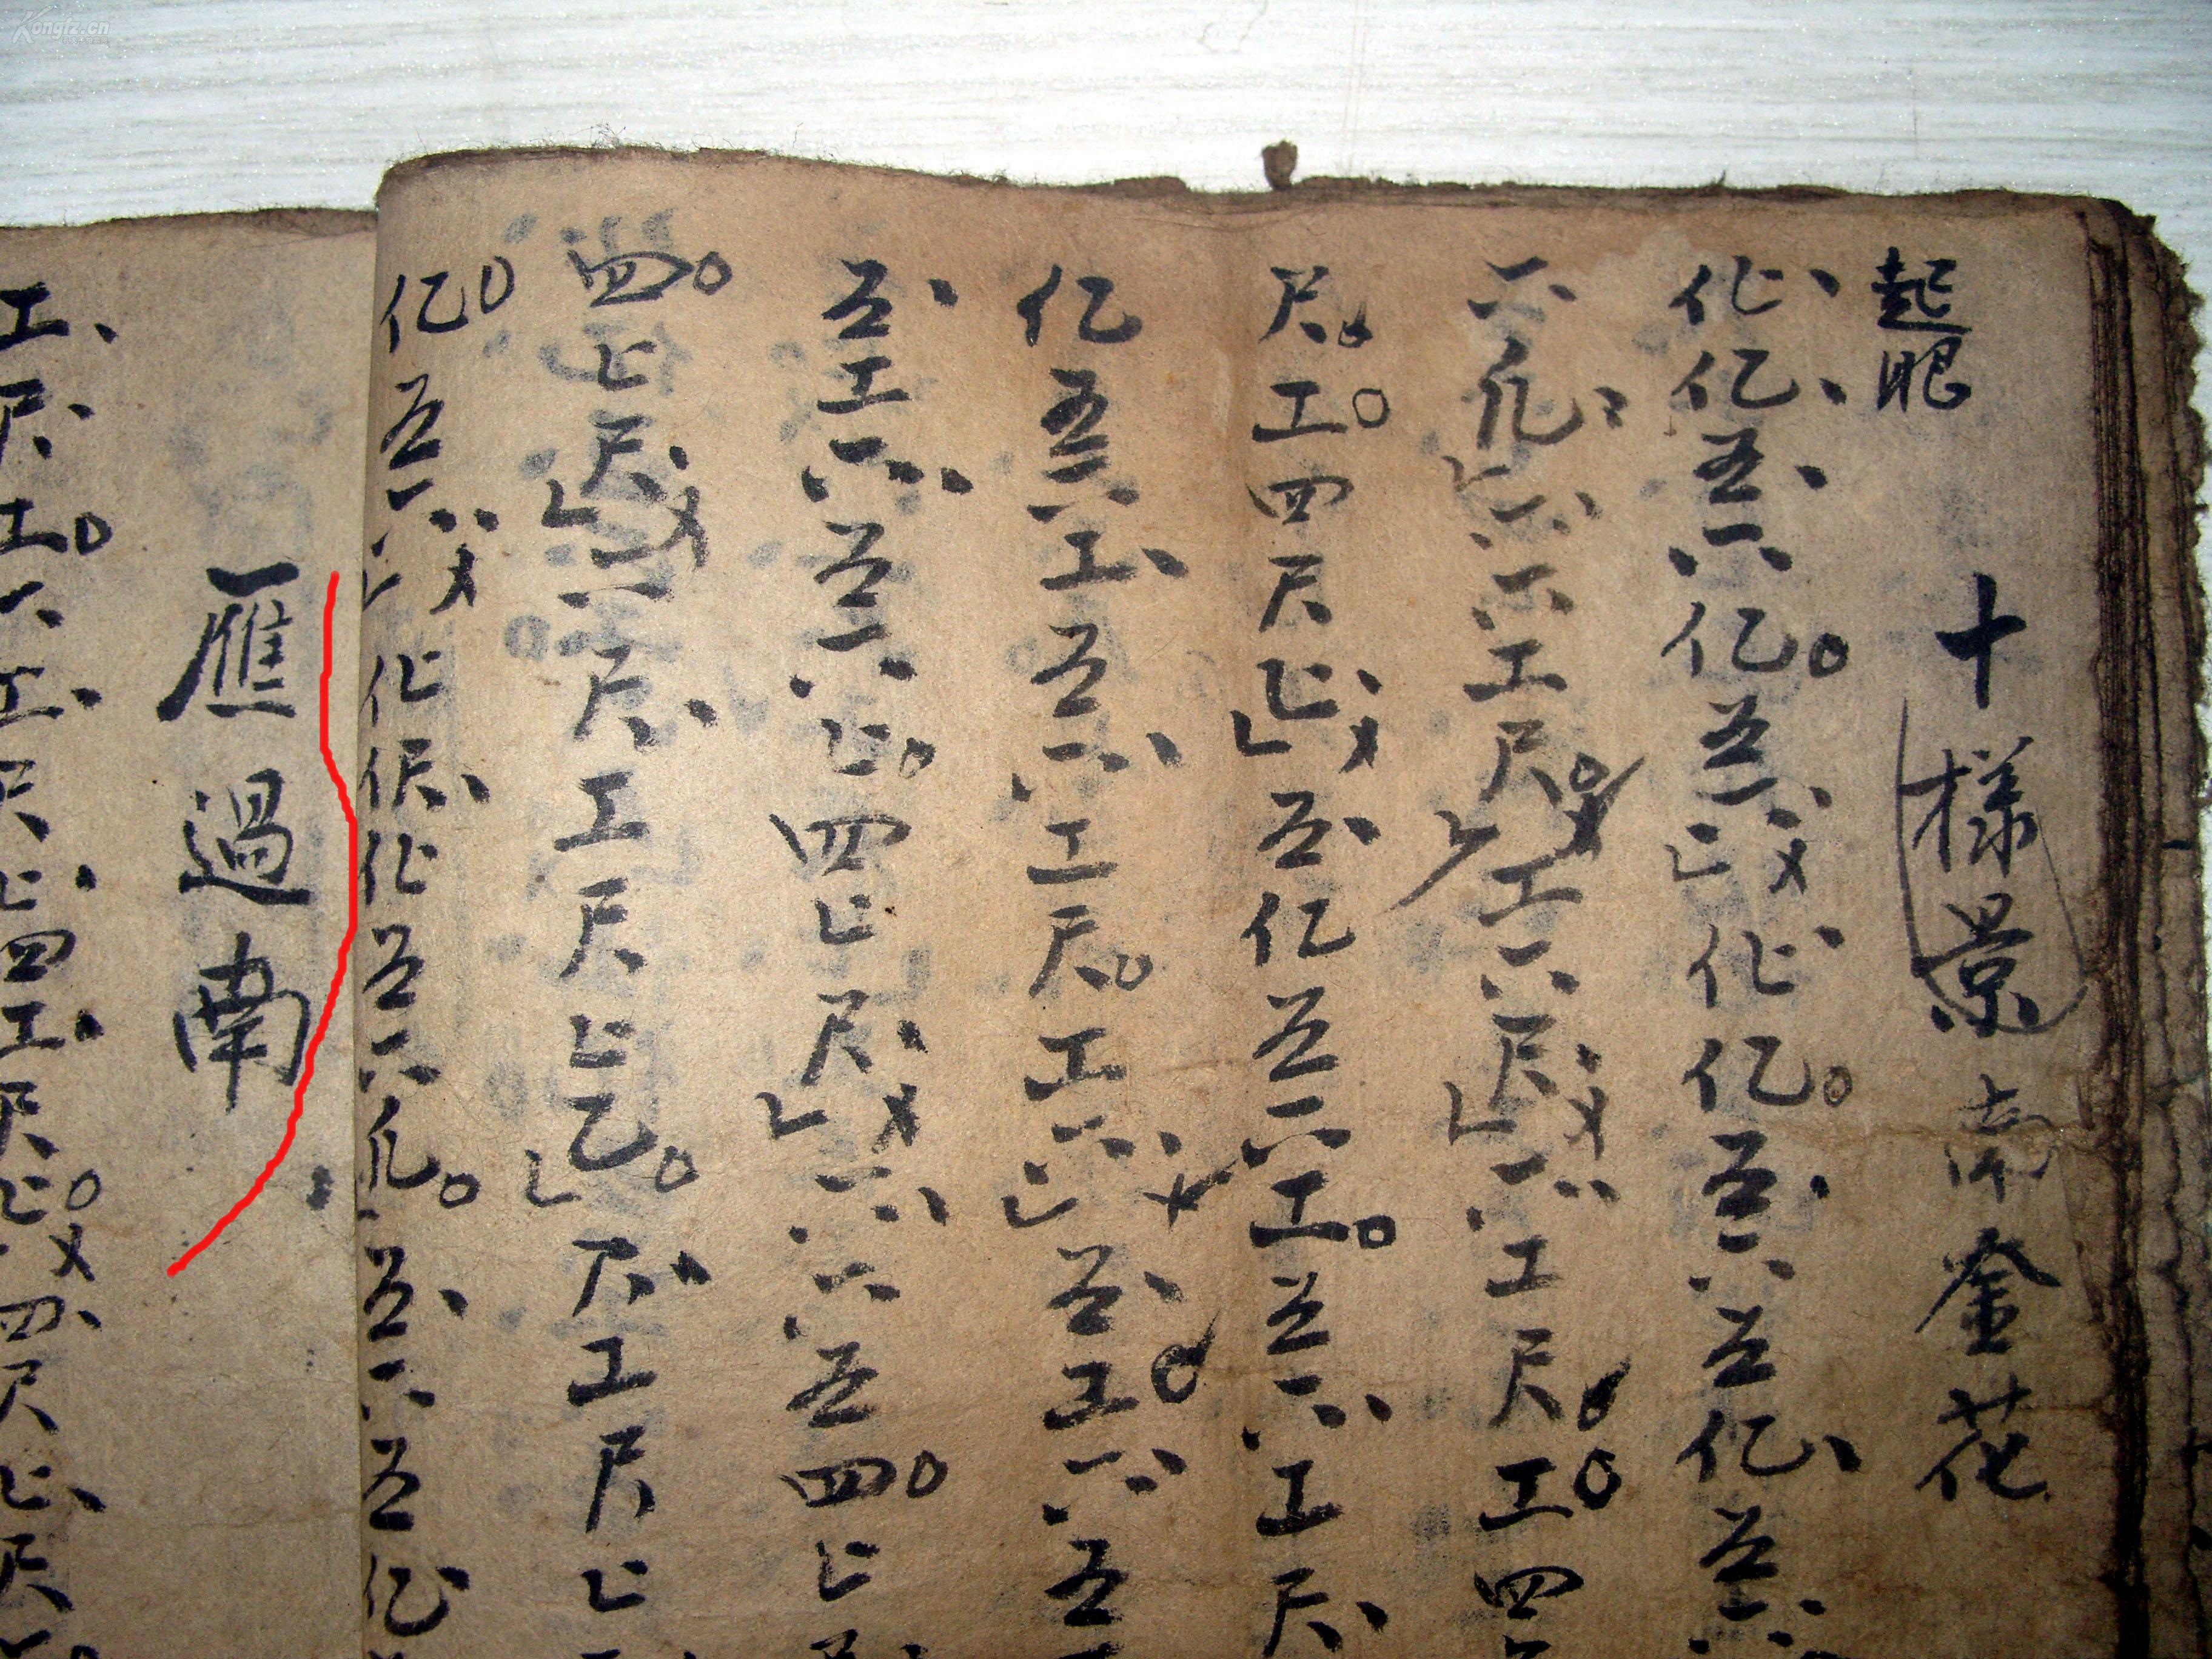 起眼
十樣景 南金花
仩亿五六亿五六上仩亿五六五亿五六
六凡六六工尺工六尺六工尺工四
尺工四尺上五亿五六工五六工尺
亿五六工五六工尺工六上五工六五
五工六五六上四上尺六六五四上
四上尺六尺工尺上乙尺工尺上
亿五六上仩伬仩五六凡五六五亿
雁過南
工尺工六工尺上四工尺上四尺上尺
Kongfz.cn